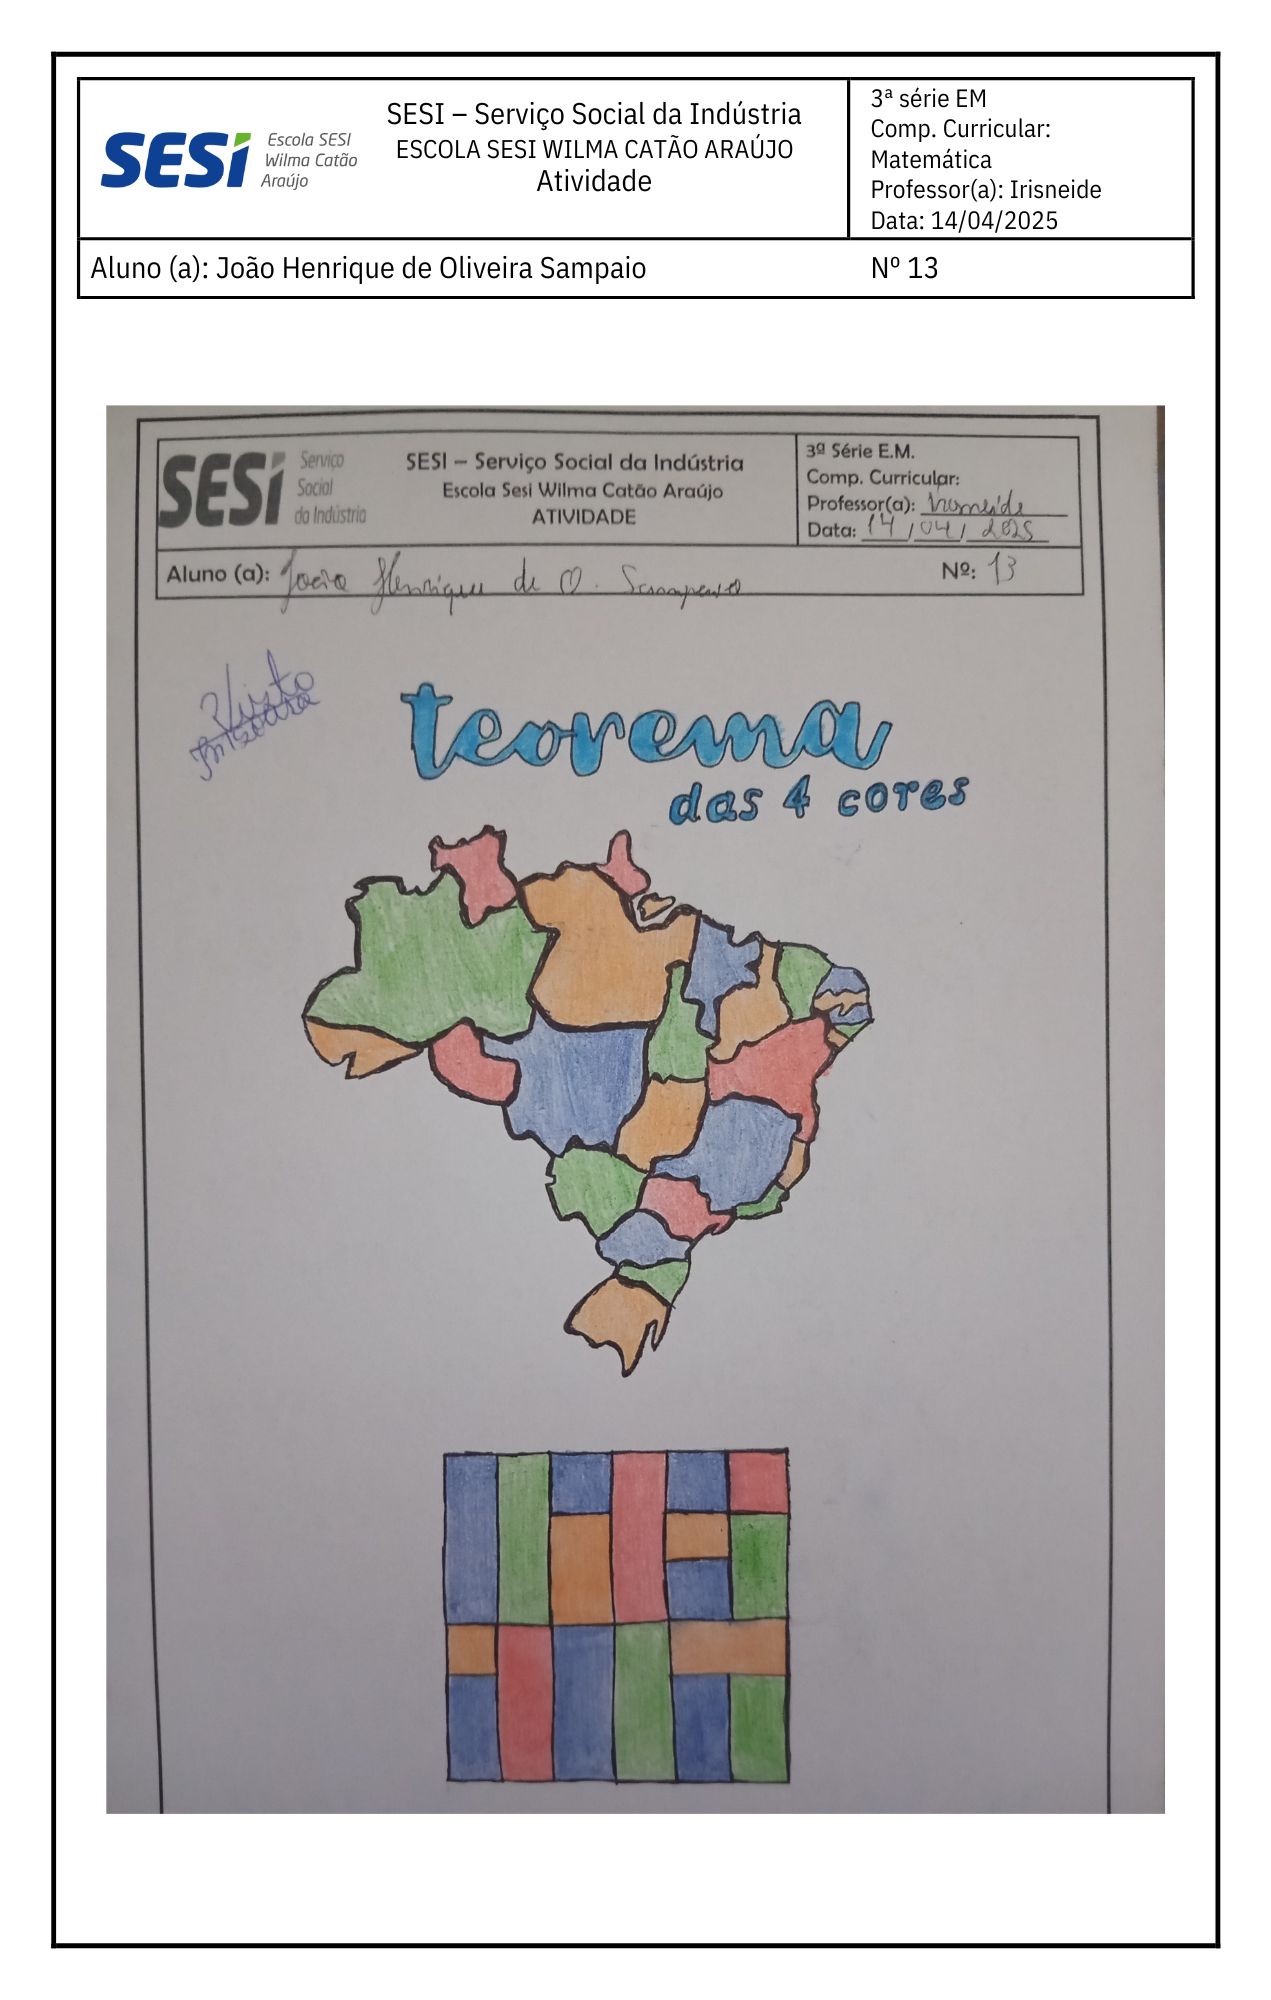 SESI
Escola SESI
Wilma Catão
Araújo
SESI – Serviço Social da Indústria
ESCOLA SESI WILMA CATÃO ARAÚJO
Atividade
3ª série EM
Comp. Curricular:
Matemática
Professor(a): Irisneide
Data: 14/04/2025
Aluno (a): João Henrique de Oliveira Sampaio
Nº 13
SESI
Serviço
Social
da Indústria
SESI – Serviço Social da Indústria
Escola Sesi Wilma Catão Araújo
ATIVIDADE
3ª Série E.M.
Comp. Curricular:
Professor(a):
Data: 14/04/2025
Aluno (a): João Henrique de O. Sampaio
Nº: 13
Visto
teorema
das 4 cores